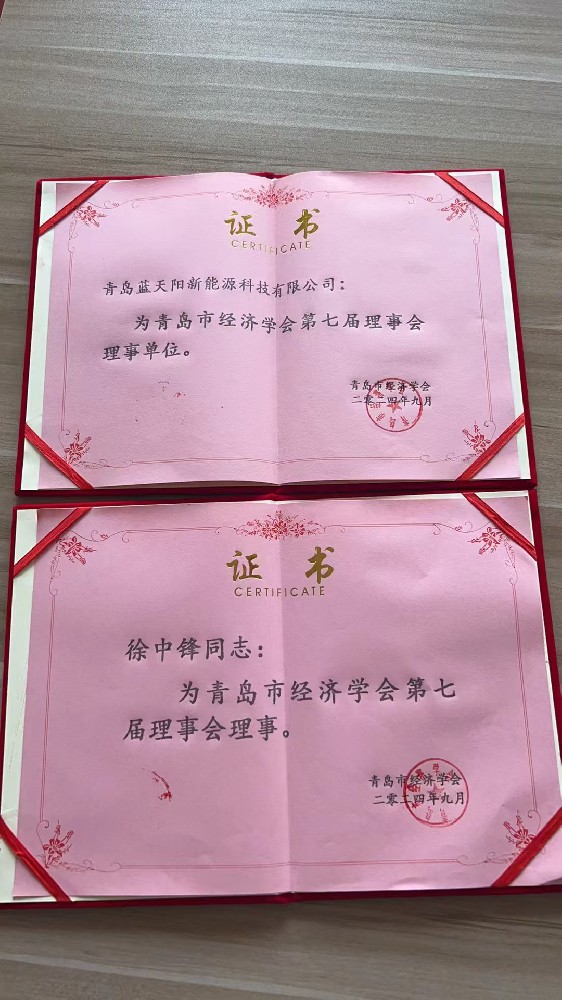 证 书
CERTIFICATE
青岛蓝天阳新能源科技有限公司：
为青岛市经济学会第七届理事会
理事单位。
青岛市经济学会
二零二四年九月
证 书
CERTIFICATE
徐中锋同志：
为青岛市经济学会第七
届理事会理事。
青岛市经济学会
二零二四年九月